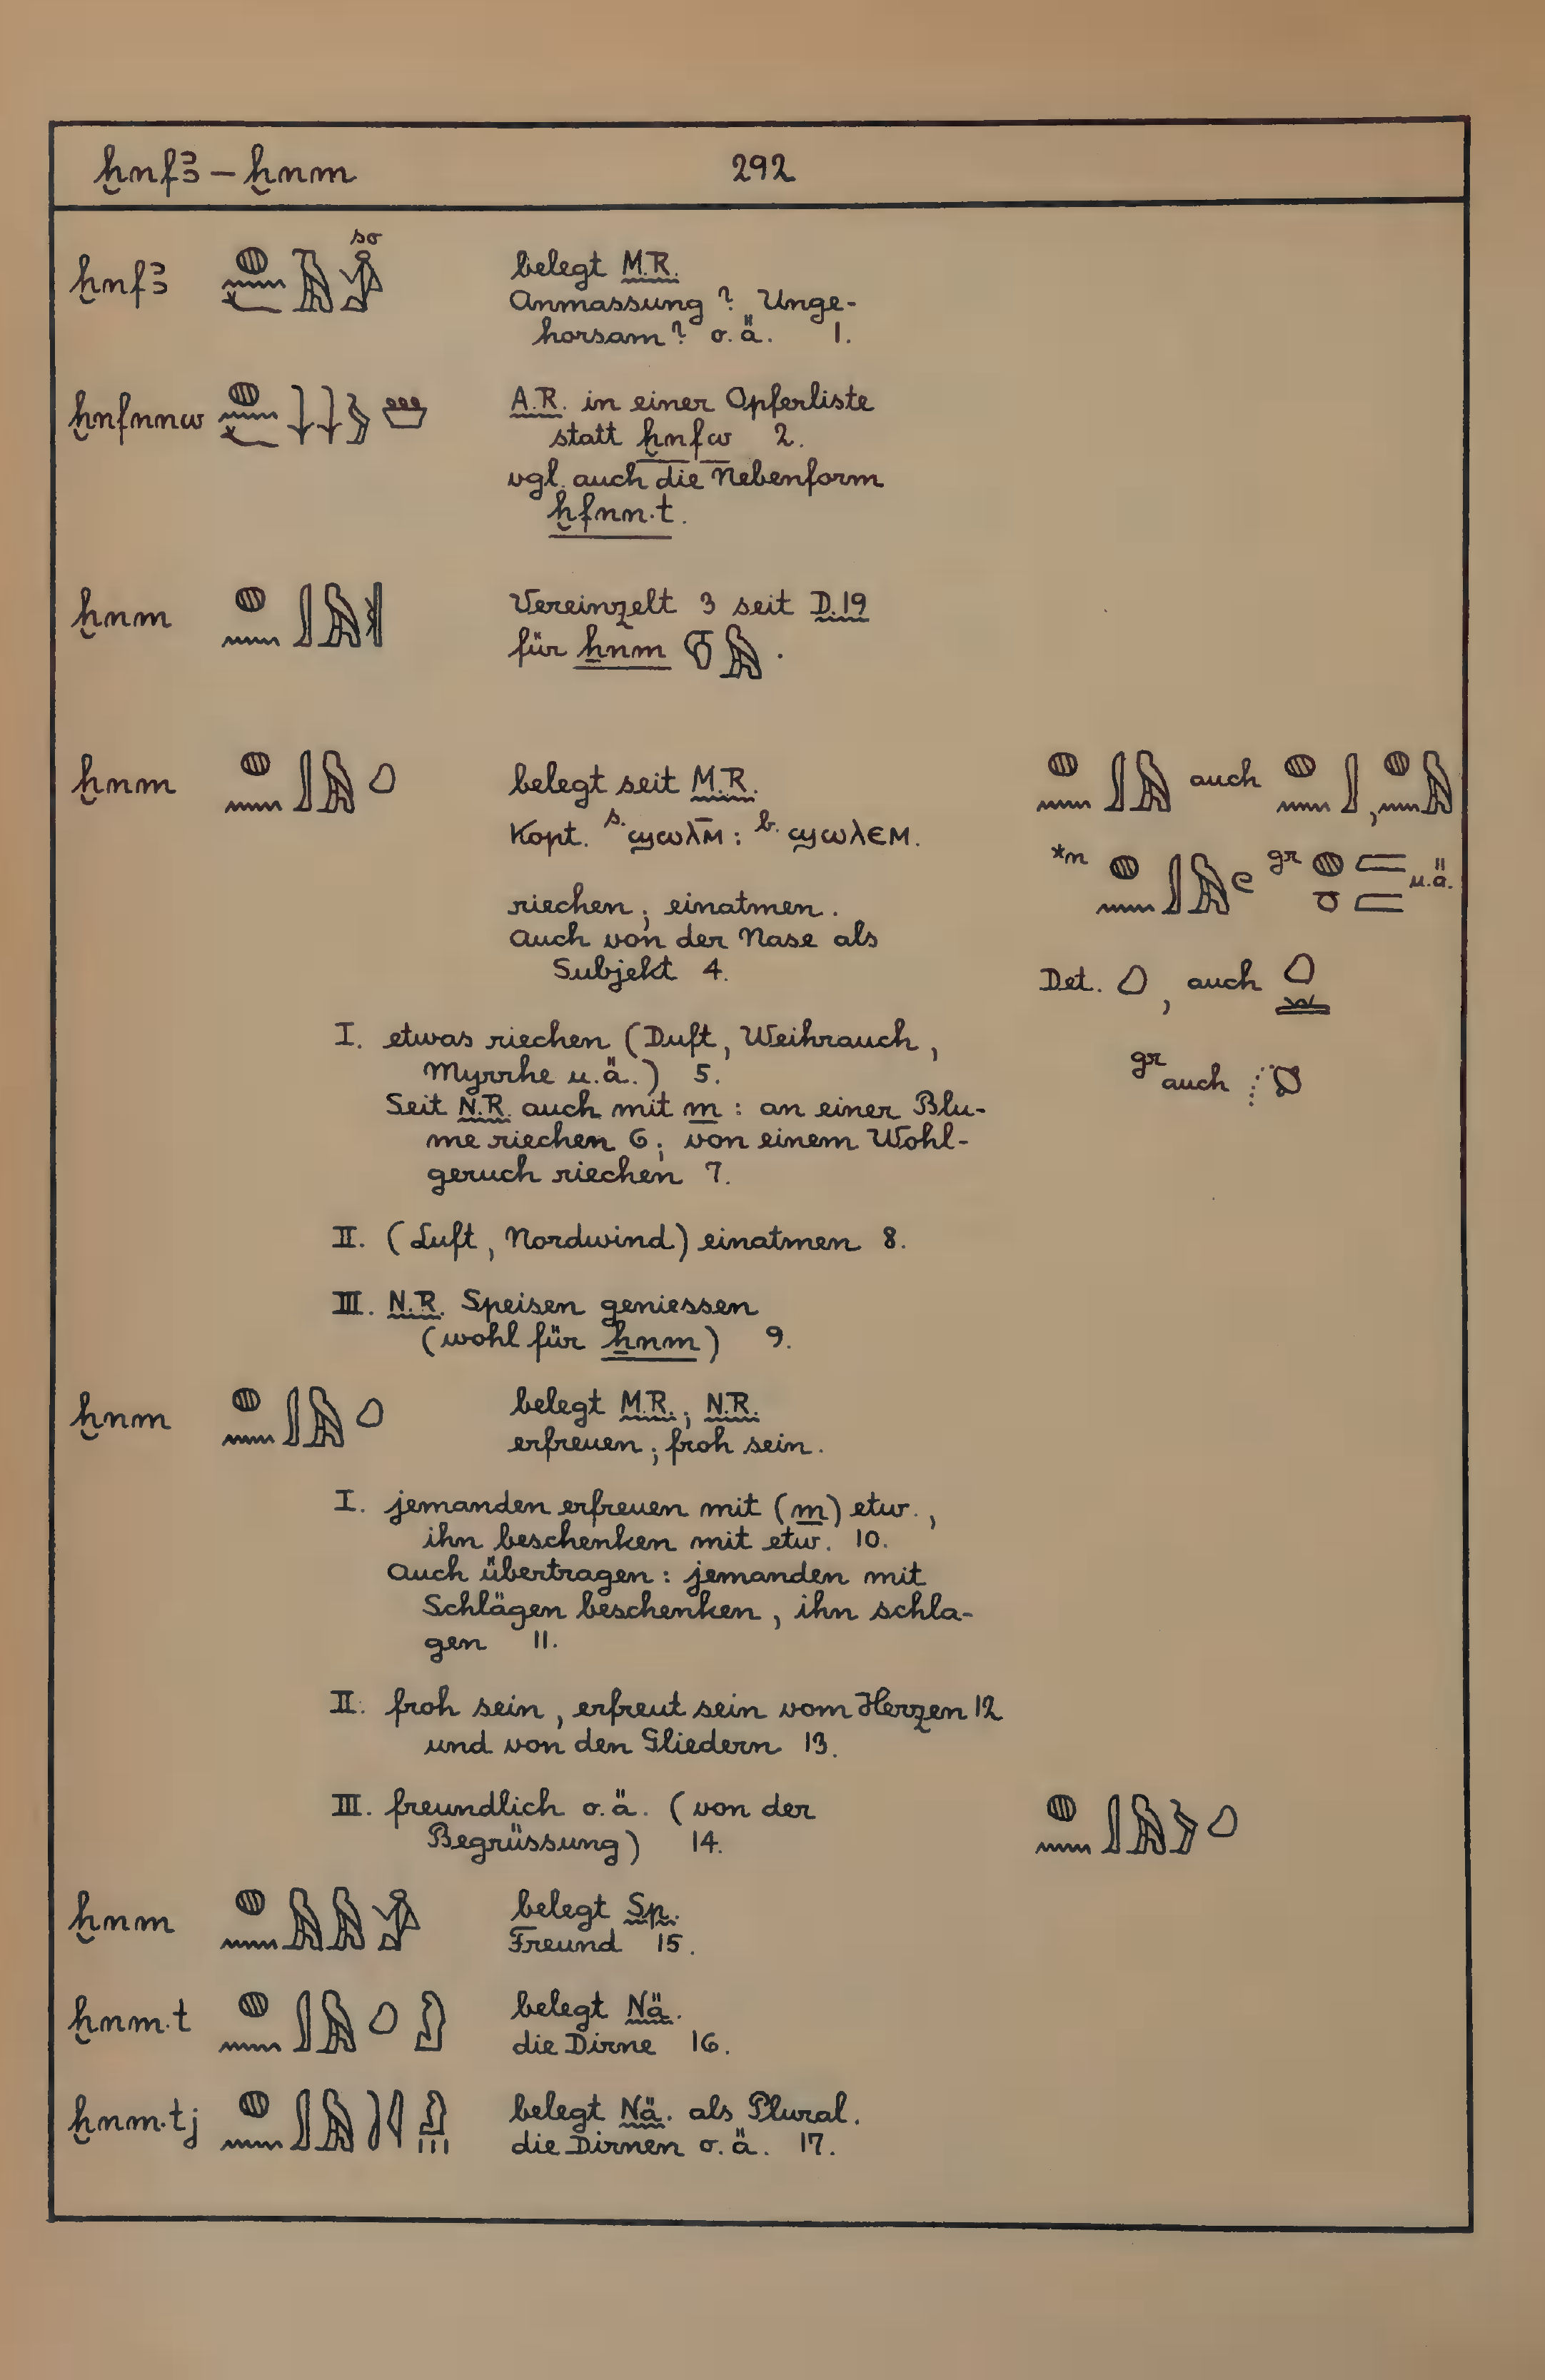 ḫnfꜣ – ḫnm 292
ḫnfꜣ
so
belegt M.R.
Anmassung? Unge-
horsam? o.ä. 1.
ḫnfnnw
A.R. in einer Opferliste
statt ḫnfw 2.
vgl. auch die Nebenform
ḫfnn.t.
ḫnm
Vereinzelt 3 seit D.19
für ẖnm .
ḫnm
belegt seit M.R.
Kopt. s. ϣⲱⲗⲙ̄ : b. ϣⲱⲗⲉⲙ.
auch ,
*n gr u.ä.
riechen; einatmen.
Auch von der Nase als
Subjekt 4.
Det. , auch
gr auch
I. etwas riechen (Duft, Weihrauch,
Myrrhe u.ä.) 5.
Seit N.R. auch mit m : an einer Blu-
me riechen 6; von einem Wohl-
geruch riechen 7.
II. (Luft, Nordwind) einatmen 8.
III. N.R. Speisen geniessen
(wohl für ẖnm) 9.
ḫnm
belegt M.R.; N.R.
erfreuen; froh sein.
I. jemanden erfreuen mit (m) etw.,
ihn beschenken mit etw. 10.
Auch übertragen: jemanden mit
Schlägen beschenken, ihn schla-
gen 11.
II. froh sein, erfreut sein vom Herzen 12
und von den Gliedern 13.
III. freundlich o.ä. (von der
Begrüssung) 14.
ḫnm
belegt Sp.
Freund 15.
ḫnm.t
belegt Nä.
die Dirne 16.
ḫnm.tj
belegt Nä. als Plural.
die Dirnen o.ä. 17.